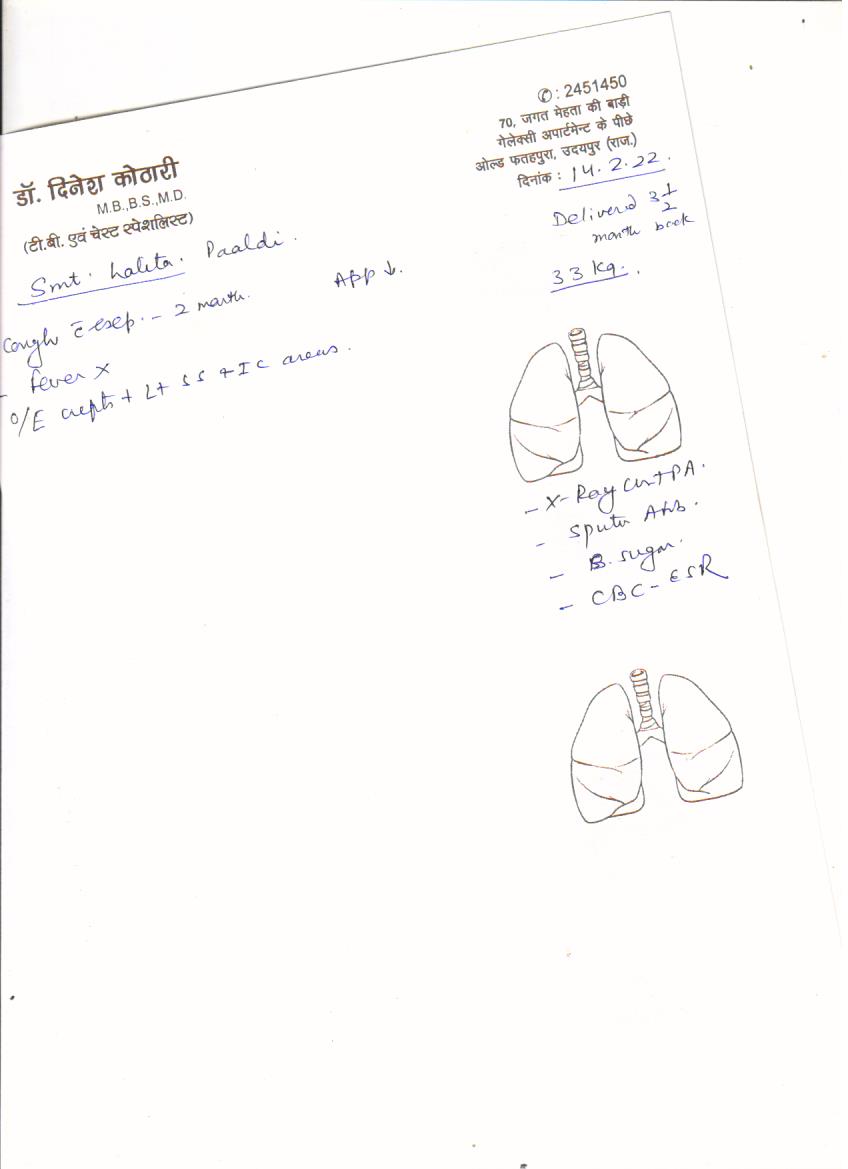 ✆: 2451450
70, जगत मेहता की बाड़ी
गेलेक्सी अपार्टमेन्ट के पीछे
ओल्ड फतहपुरा, उदयपुर (राज.)
दिनांक : 14.2.22.
डॉ. दिनेश कोठारी
M.B.,B.S.,M.D.
(टी.बी. एवं चेस्ट स्पेशलिस्ट)
Delivered 3 1/2
month back
33 Kg.
Smt. Lalita. Paaldi.
App ↓.
Cough c̄ - 2 month.
- Fever x
O/E crepts + Lt SS + IC areas.
- X-Ray Chest PA.
- Sputum AFB.
- B. sugar.
- CBC - ESR